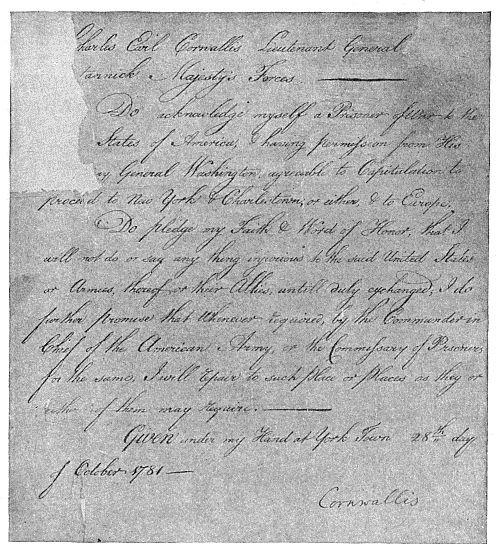 Charles Earl Cornwallis Lieutenant General
tannick Majesty's Forces.
Do acknowledge myself a Prisoner of War to the
States of America, & having permission from His
y General Washington, agreeable to Capitulation to
proceed to New York & Charlestown, or either, & to Europe.
Do pledge my Faith & Word of Honor, that I
will not do or say any thing injurious to the said United States
or Armies, thereof, or their Allies, untill duly exchanged, I do
further promise that Whenever required, by the Commander in
Chief of the American Army, or the Commissary of Prisoners
for the same, I will repair to such place or places as they or
either of them may require.
Given under my Hand at York Town 28th day
of October 1781
Cornwallis